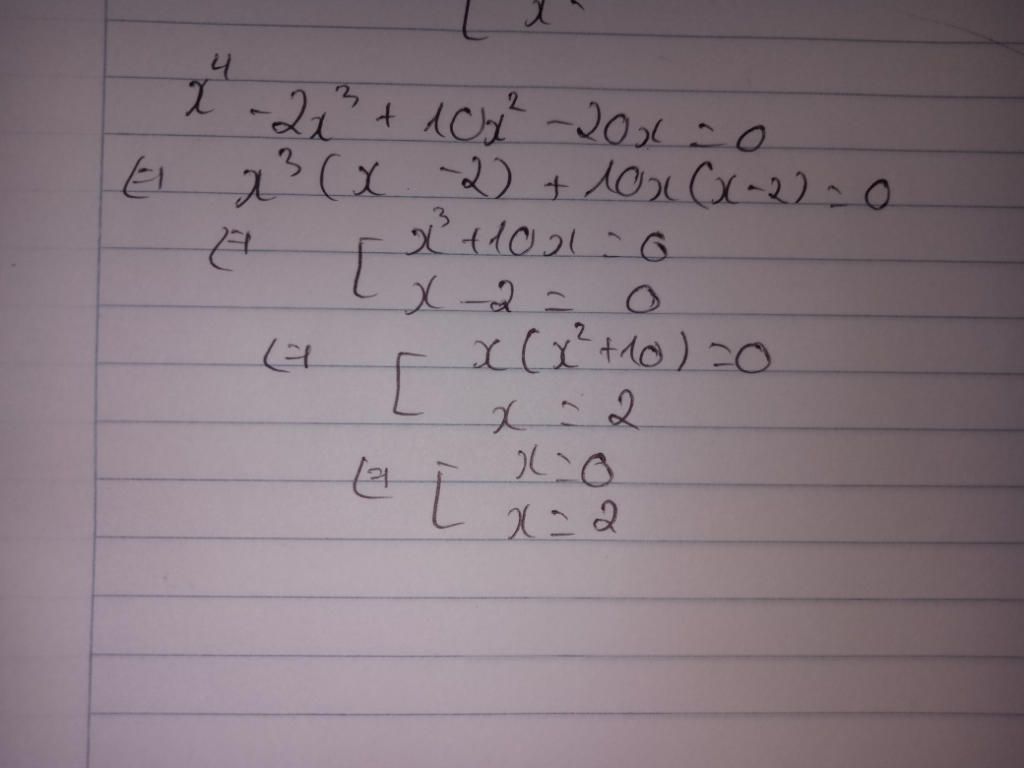 [ x
x⁴ - 2x³ + 10x² - 20x = 0
⇔ x³(x - 2) + 10x(x-2) = 0
⇔ [ x³ + 10x = 0
x - 2 = 0
⇔ [ x(x² + 10) = 0
x = 2
⇔ [ x = 0
x = 2